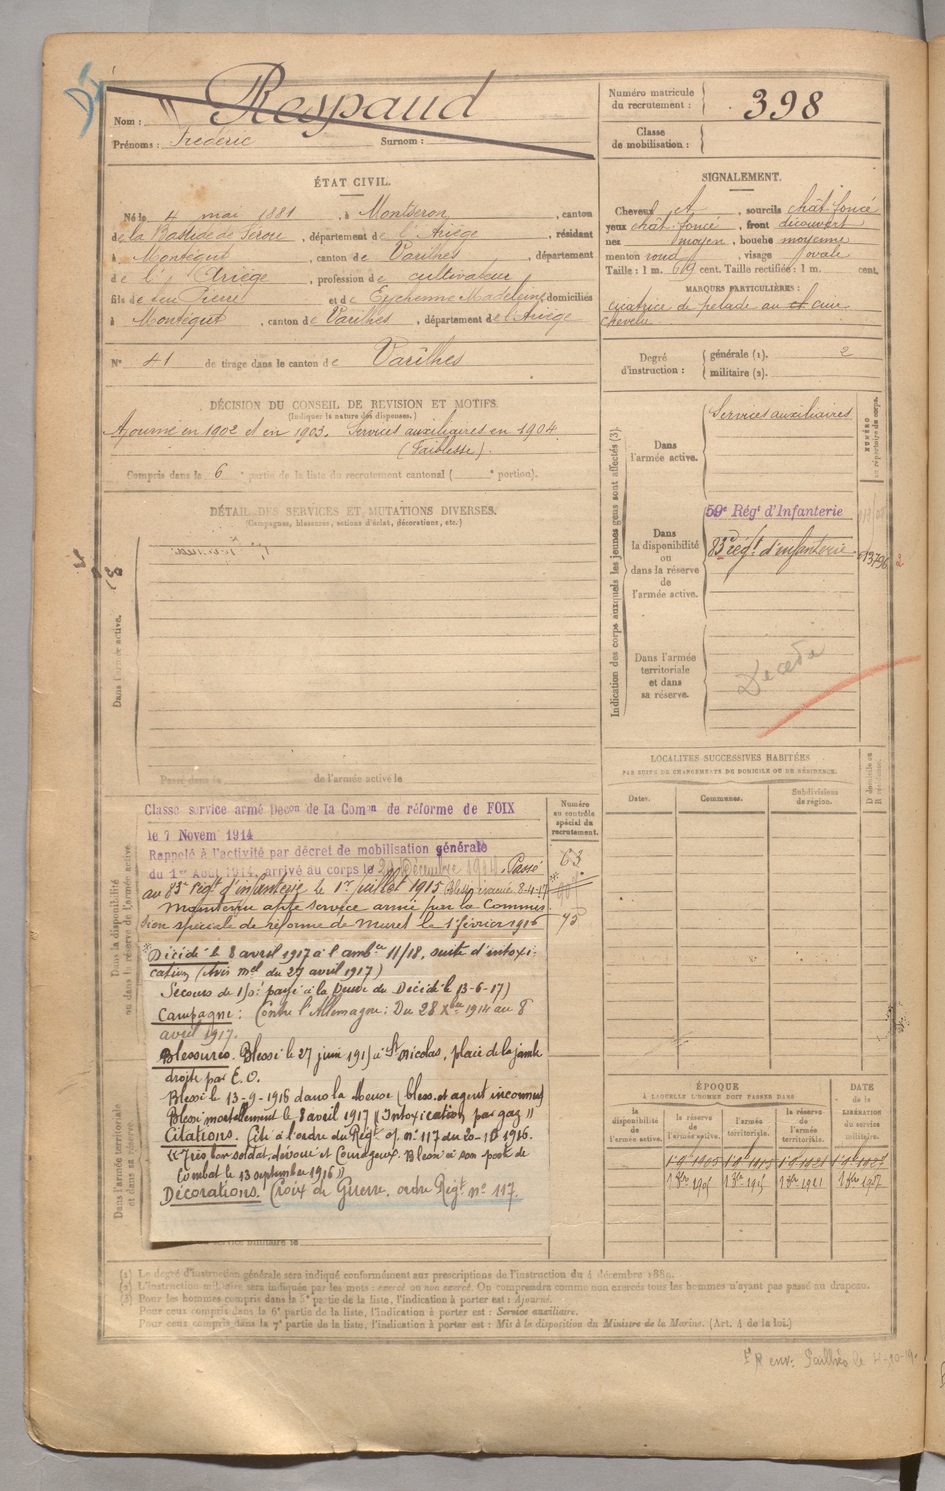 Nom : Respaud
Prénoms : Frédéric Surnom :
Numéro matricule du recrutement : 398
Classe de mobilisation :
ÉTAT CIVIL.
Né le 4 mai 1881, à Montseron, canton
de la Bastide de Sérou, département de l'Ariège, résidant
à Montégut, canton de Varilhes, département
de l'Ariège, profession de cultivateur
fils de feu Pierre et de Eychenne Madeleine, domiciliés
à Montégut, canton de Varilhes, département de l'Ariège
N° 41 de tirage dans le canton de Varilhes
SIGNALEMENT.
Cheveux et, sourcils chat. foncé
yeux chat. foncé, front découvert
nez moyen, bouche moyenne
menton rond, visage ovale
Taille : 1 m. 69 cent. Taille rectifiée : 1 m. cent.
MARQUES PARTICULIÈRES :
cicatrice de pelade au cuir
chevelu
Degré d'instruction : générale (1). 2
militaire (2).
DÉCISION DU CONSEIL DE REVISION ET MOTIFS.
(Indiquer la nature des dispenses.)
Ajourné en 1902 et en 1903. Services auxiliaires en 1904
(Faiblesse).
Compris dans la 6e partie de la liste du recrutement cantonal ( e portion).
DÉTAIL DES SERVICES ET MUTATIONS DIVERSES.
(Campagnes, blessures, actions d'éclat, décorations, etc.)
Dans l'armée active.
Passé dans la de l'armée active le
Indication des corps auxquels les jeunes gens sont affectés (3).
NUMÉRO au répertoire du corps.
Dans l'armée active.
Services auxiliaires
Dans la disponibilité ou dans la réserve de l'armée active.
59e Régt d'Infanterie
83e régt d'infanterie
Dans l'armée territoriale et dans sa réserve.
Décédé
LOCALITÉS SUCCESSIVES HABITÉES
PAR SUITE DE CHANGEMENTS DE DOMICILE OU DE RÉSIDENCE.
D domicile ou R résidence.
Dates. Communes. Subdivisions de région.
Dans la disponibilité ou dans la réserve de l'armée active
Numéro au contrôle spécial du recrutement.
Classé service armé Décon de la Comon de réforme de FOIX
le 7 Novem 1914
Rappelé à l'activité par décret de mobilisation générale
du 1er Août 1914, arrivé au corps le Décembre 1914. Passé
au 83e régt d'infanterie le 1er juillet 1915
63
Maintenu apte service armé par la Commis
sion spéciale de réforme de Muret le 1er février 1916
75
Décédé le 8 avril 1917 à l'ambce 11/18, suite d'intoxi-
cation (Avis mel du 27 avril 1917)
Secours de 150f payé à la Veuve du Décédé le 13-6-17)
Campagne : Contre l'Allemagne : Du 28 Xbre 1914 au 8
avril 1917.
Blessures. Blessé le 27 juin 1915 à St Nicolas, plaie de la jambe
droite par E. O.
Blessé le 13-9-1916 dans la Meuse (bless. et agent inconnus)
Blessé mortellement le 8 avril 1917 "Intoxication par gaz"
Citations. Cité à l'ordre du Régt of. n° 117 du 1916.
"Très bon soldat, dévoué et Courageux. Blessé à son poste de
Combat le 13 septembre 1916"
Décorations. Croix de Guerre, ordre Régt n° 117.
Dans l'armée territoriale et dans sa réserve.
service militaire le
ÉPOQUE
A LAQUELLE L'HOMME DOIT PASSER DANS
la disponibilité de l'armée active.
la réserve de l'armée active.
l'armée territoriale.
la réserve de l'armée territoriale.
DATE de la LIBÉRATION du service militaire.
(1) Le degré d'instruction générale sera indiqué conformément aux prescriptions de l'instruction du 4 décembre 1889.
(2) L'instruction militaire sera indiquée par les mots : exercé ou non exercé. On comprendra comme non exercés tous les hommes n'ayant pas passé au drapeau.
(3) Pour les hommes compris dans la 5e partie de la liste, l'indication à porter est : Ajourné.
Pour ceux compris dans la 6e partie de la liste, l'indication à porter est : Service auxiliaire.
Pour ceux compris dans la 7e partie de la liste, l'indication à porter est : Mis à la disposition du Ministre de la Marine. (Art. 4 de la loi.)